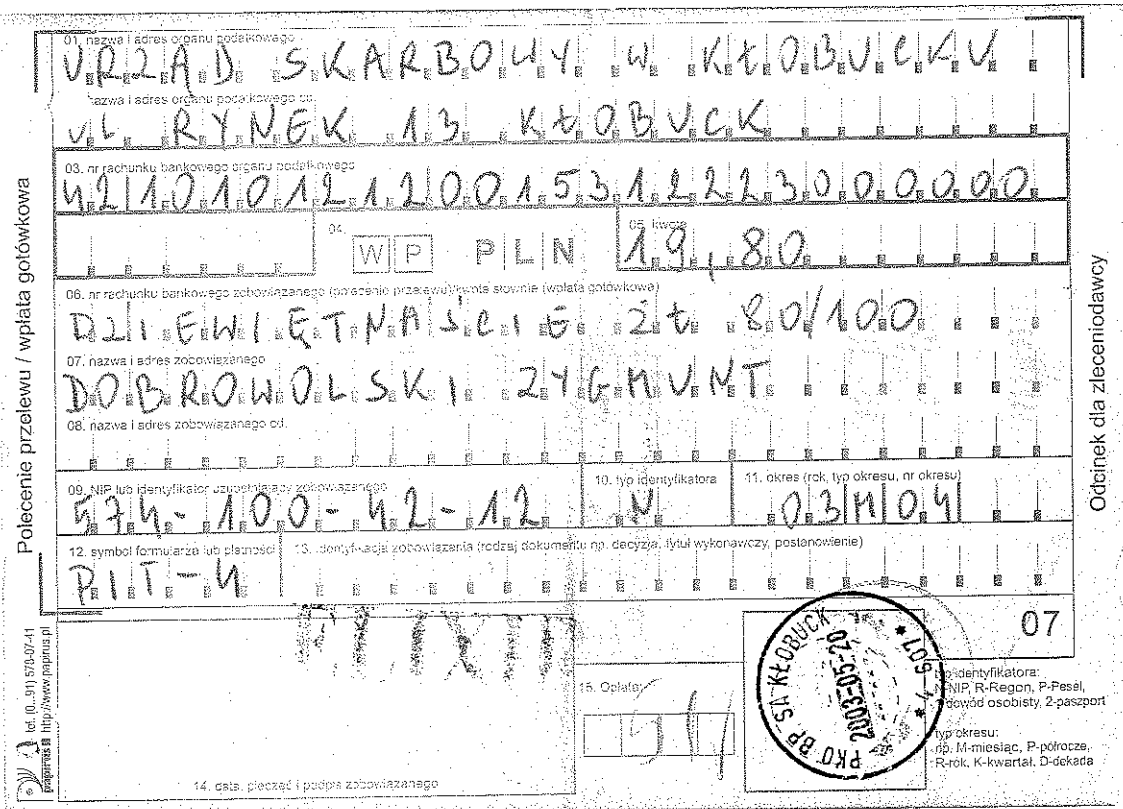 01. nazwa i adres organu podatkowego
URZĄD SKARBOWY W KŁOBUCKU
nazwa i adres organu podatkowego cd.
UL RYNEK 13 KŁOBUCK
03. nr rachunku bankowego organu podatkowego
42101012120015312223000000
04.
WP PLN
05. kwota
19,80
06. nr rachunku bankowego zobowiązanego (polecenie przelewu)/kwota słownie (wpłata gotówkowa)
DZIEWIĘTNAŚCIE ZŁ 80/100
07. nazwa i adres zobowiązanego
DOBROWOLSKI ZYGMUNT
08. nazwa i adres zobowiązanego cd.
09. NIP lub identyfikator uzupełniający zobowiązanego
574-100-42-12
10. typ identyfikatora
N
11. okres (rok, typ okresu, nr okresu)
03M04
12. symbol formularza lub płatności
PIT-4
13. identyfikacja zobowiązania (rodzaj dokumentu np. decyzja, tytuł wykonawczy, postanowienie)
07
14. data, pieczęć i podpis zobowiązanego
15. Opłata:
PKO BP SA KŁOBUCK
2003-05-20
* 507 *
typ identyfikatora:
N-NIP, R-Regon, P-Pesel,
1-dowód osobisty, 2-paszport
typ okresu:
np. M-miesiąc, P-półrocze,
R-rok, K-kwartał, D-dekada
Polecenie przelewu / wpłata gotówkowa
Odcinek dla zleceniodawcy
papirus tel. (0...91) 570-07-41
http://www.papirus.pl